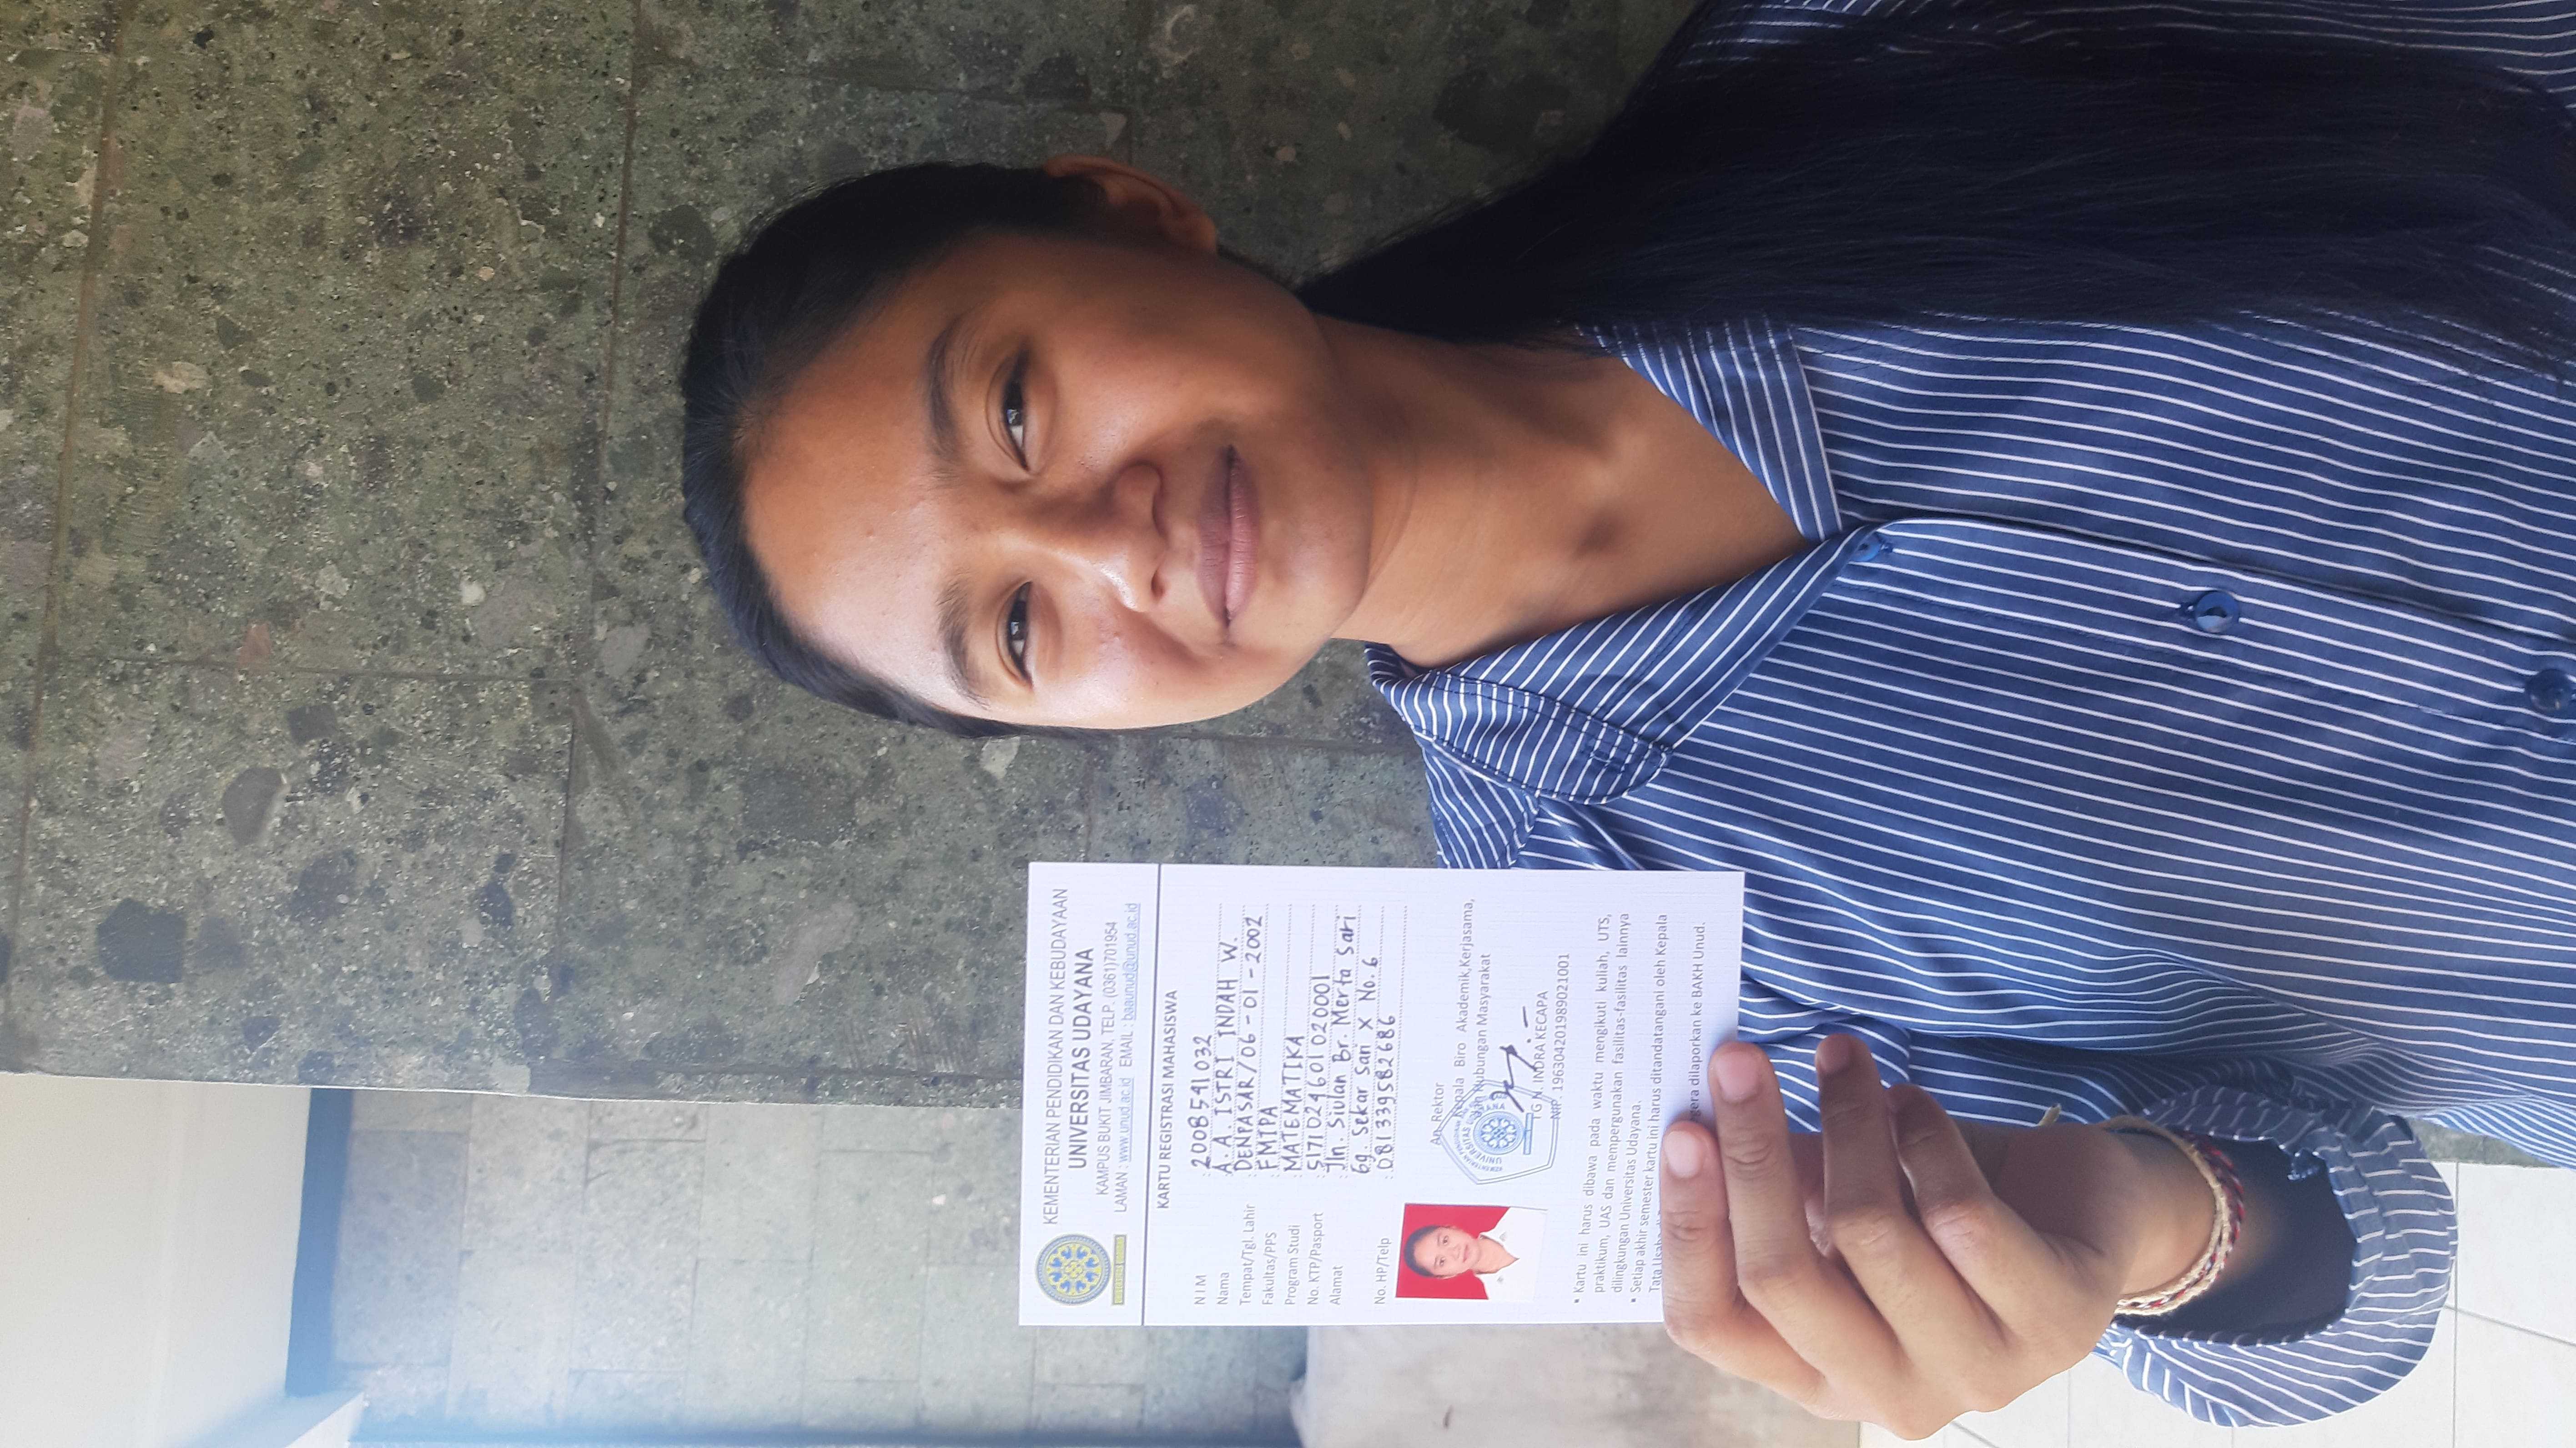 KEMENTERIAN PENDIDIKAN DAN KEBUDAYAAN
UNIVERSITAS UDAYANA
KAMPUS BUKIT JIMBARAN, TELP. (0361)701954
LAMAN : www.unud.ac.id EMAIL : baaunud@unud.ac.id
KARTU REGISTRASI MAHASISWA
N I M : 2008541032
Nama : A. A. ISTRI INDAH W.
Tempat/Tgl. Lahir : DENPASAR/06-01-2002
Fakultas/PPS : FMIPA
Program Studi : MATEMATIKA
No. KTP/Pasport : 5171024601020001
Alamat : Jln. Siulan Br. Merta Sari
Gg. Sekar Sari X No.6
No. HP/Telp : 081339582686
An. Rektor
Kepala Biro Akademik,Kerjasama,
dan Hubungan Masyarakat
UNIVERSITAS UDAYANA
I G N. INDRA KECAPA
NIP. 196304201989021001
• Kartu ini harus dibawa pada waktu mengikuti kuliah, UTS,
praktikum, UAS dan mempergunakan fasilitas-fasilitas lainnya
dilingkungan Universitas Udayana.
• Setiap akhir semester kartu ini harus ditandatangani oleh Kepala
Tata Usaha
dilaporkan ke BAKH Unud.